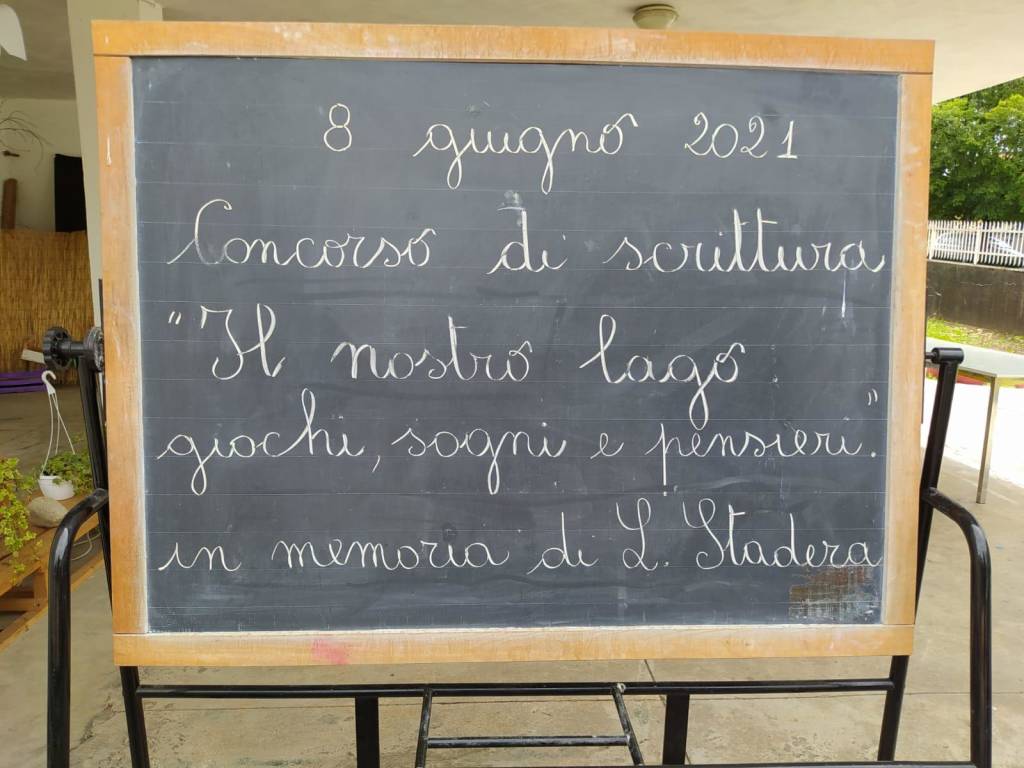 8 giugno 2021
Concorso di scrittura
"Il nostro lago:
giochi, sogni e pensieri."
in memoria di L. Stadera